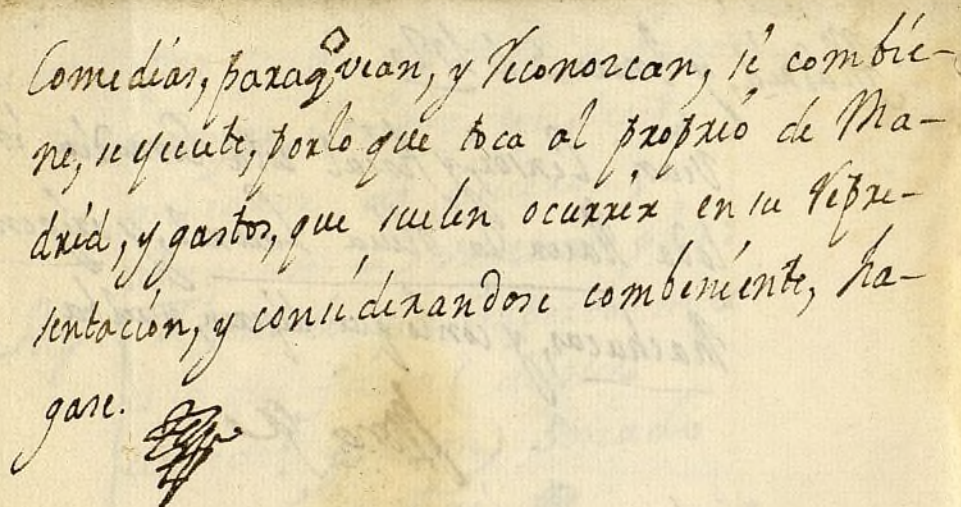 Comedias, paraq̃ vean, y Reconorcan, si combie-
ne, se ejecute, porlo que toca al proprio de Ma-
drid, y gastos, que suelen ocurrir en su Repre-
sentacion, y considerandose combeniente, ha-
gase.